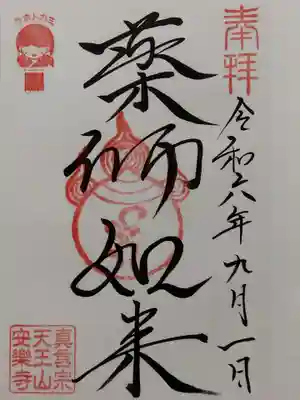 奉拝
令和六年九月一日
薬師如来
真言宗
天王山
安樂寺